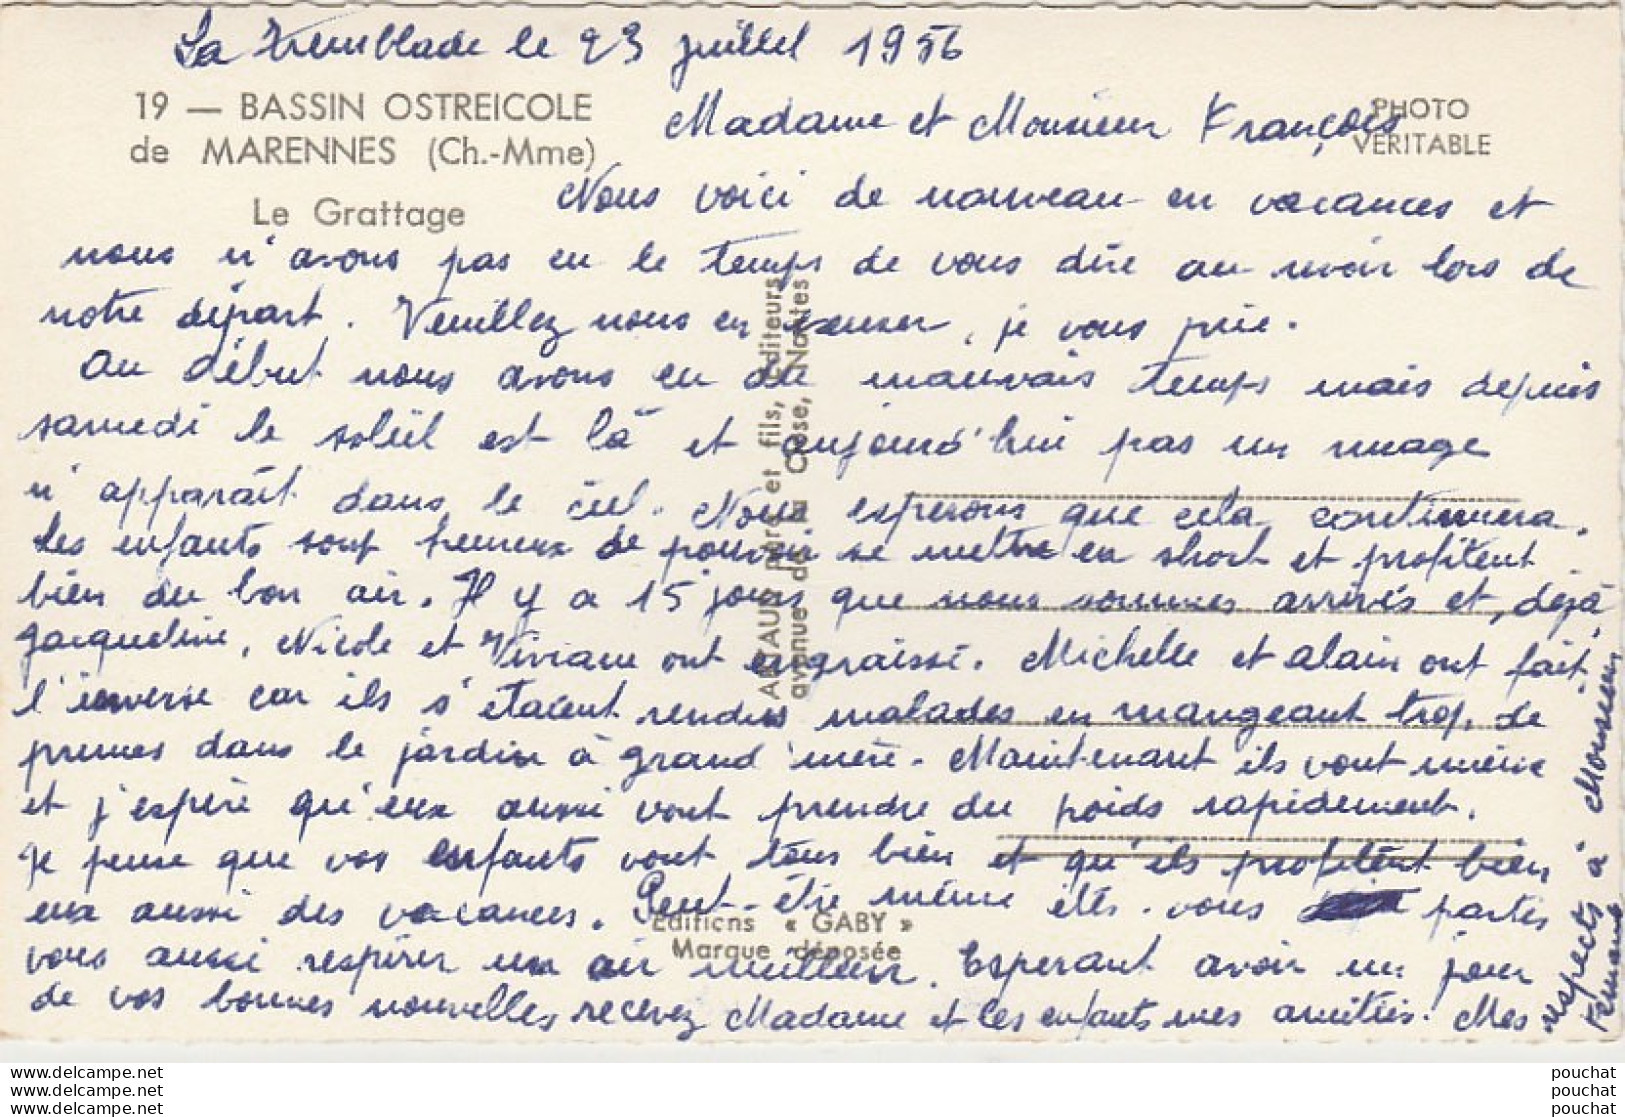 La Tremblade le 23 juillet 1956
19 — BASSIN OSTREICOLE
de MARENNES (Ch.-Mme)
Le Grattage
PHOTO
VERITABLE
Madame et Monsieur François
Nous voici de nouveau en vacances et
nous n'avons pas eu le temps de vous dire au revoir lors de
notre départ. Veuillez nous en excuser, je vous prie.
Au début nous avons eu du mauvais temps mais depuis
samedi le soleil est là et aujourd'hui pas un nuage
n'apparaît dans le ciel. Nous esperons que cela continuera.
Les enfants sont heureux de pouvoir se mettre en short et profitent
bien du bon air. Il y a 15 jours que nous sommes arrivés et, déjà,
Jacqueline, Nicole et Viviane ont engraissé. Michelle et Alain ont fait
l'inverse car ils s'étaient rendus malades en mangeant trop de
prunes dans le jardin à grand'mère. Maintenant ils vont mieux
et j'espère qu'eux aussi vont prendre du poids rapidement.
Je pense que vos enfants vont tous bien et qu'ils profitent bien
eux aussi des vacances. Peut-être même êtes-vous partis
vous aussi respirer un air meilleur. Esperant avoir un jour
de vos bonnes nouvelles recevez Madame et les enfants mes amitiés. Mes
respects à Monsieur
Fernand
ARTAUD père et fils, Editeurs
avenue de la Close, Nantes
Editions « GABY »
Marque déposée
www.delcampe.net
www.delcampe.net
www.delcampe.net
pouchat
pouchat
pouchat